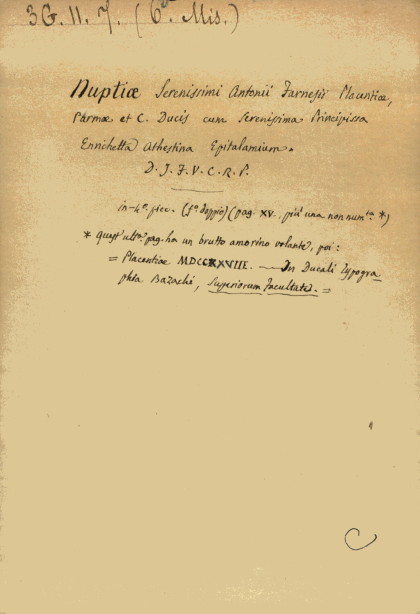 3G. II. 7. (6ª Mis.)
Nuptiæ Serenissimi Antonii Farnesii Placentiæ,
Parmæ et C. Ducis cum Serenissima Principissa
Enrichetta Athestina Epitalamium.
D. J. F. V. C. R. P.
in-4º. picc. (fº doppio) (pag. XV. più una non numta *)
* quest' ulta pag. ha un brutto amorino volante, poi:
= Placentiæ MDCCXXVIII. — In Ducali Typogra
phia Bazachi, Superiorum Facultate. =